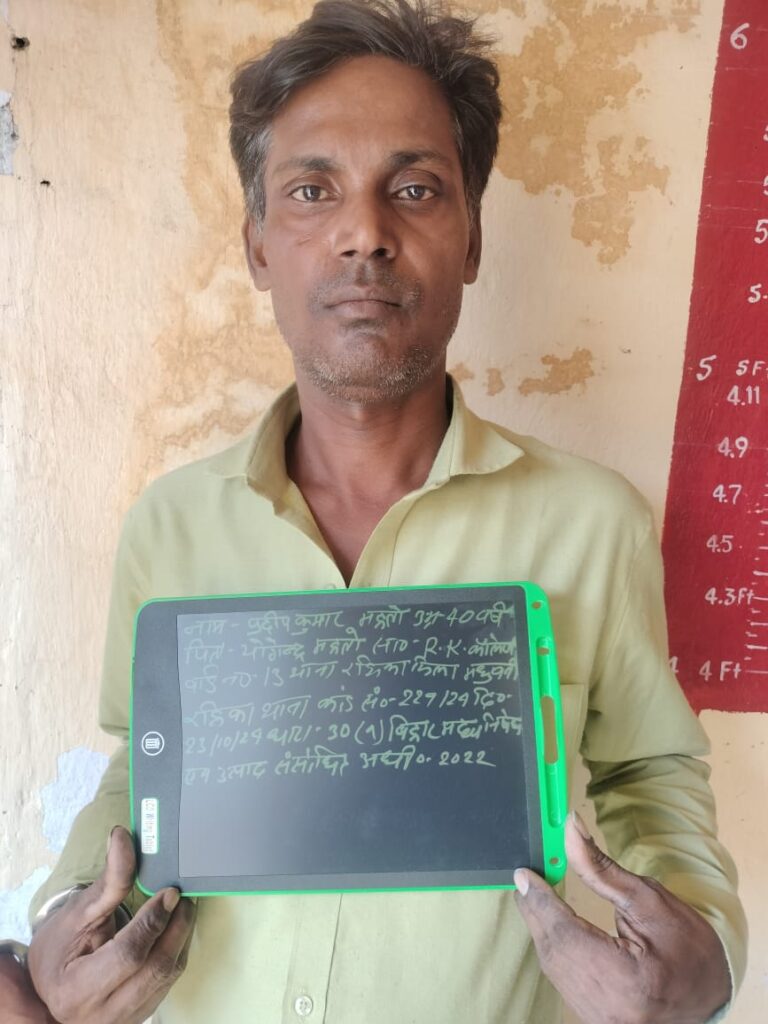 नाम - प्रदीप कुमार महतो उम्र-40 वर्ष
पिता- योगेन्द्र महतो सा०- R.K. कॉलेज
वार्ड no-13 थाना रहिका जिला मधुबनी
रहिका थाना कांड सं०-229/24 दि०-
23/10/24 धारा-30(a) बिहार मद्य निषेध
एवं उत्पाद संशोधित अधि०-2022
LCD Writing Tablet
6
5
5.
5 5F
4.11
4.9
4.7
4.5
4.3Ft
4 4Ft